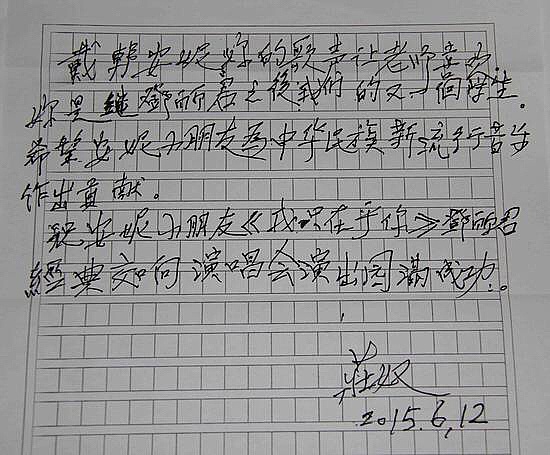 戴韩安妮妳的歌声让老师喜欢.
妳是继鄧丽君之後我们的又一個学生.
希望安妮小朋友為中华民族新流行音乐
作出贡献。
祝安妮小朋友《我只在乎你》鄧丽君
經典交响演唱会演出圆满成功.
莊奴
2015.6,12